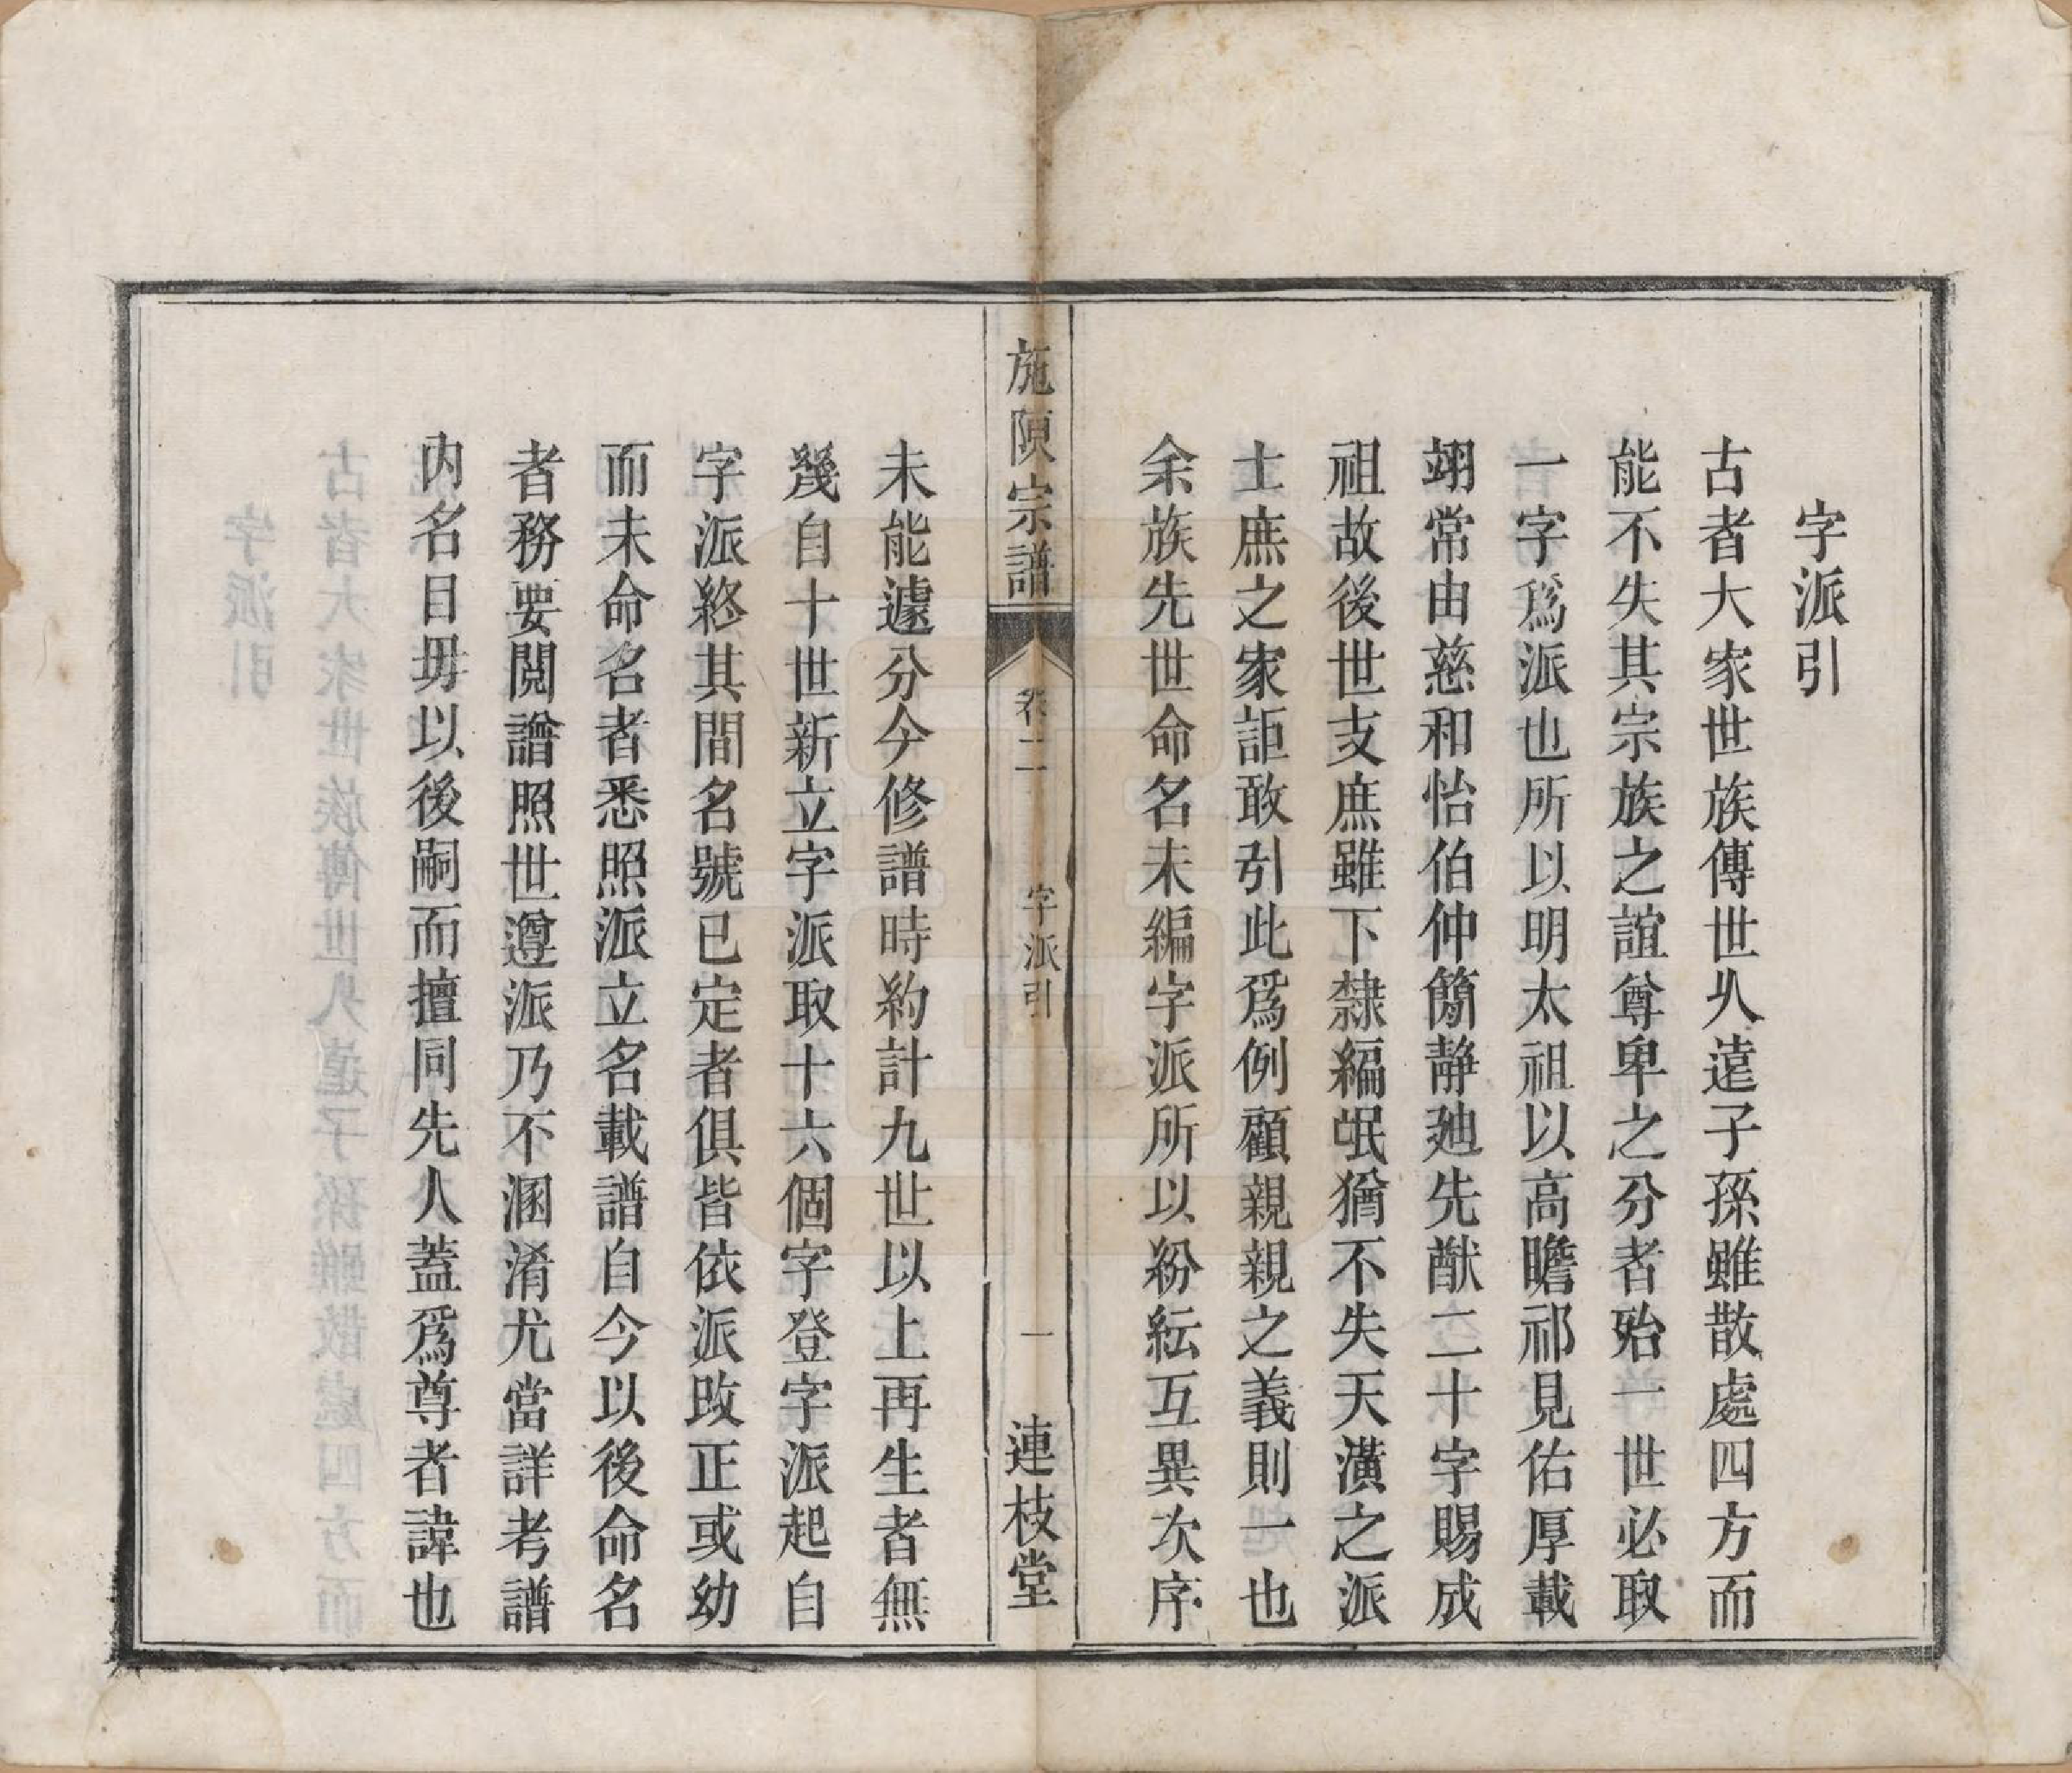 字派引
古者大家世族傳世久遠子孫雖散處四方而
能不失其宗族之誼尊卑之分者殆一世必取
一字爲派也所以明太祖以高瞻祁見佑厚載
翊常由慈和怡伯仲簡靜廸先猷二十字賜成
祖故後世支庶雖下隸編氓猶不失天潢之派
士庶之家詎敢引此爲例顧親親之義則一也
余族先世命名未編字派所以紛紜互異次序
施陳宗譜
卷二
字派引
一
連枝堂
未能遽分今修譜時約計九世以上再生者無
幾自十世新立字派取十六個字登字派起自
字派終其間名號已定者俱皆依派改正或幼
而未命名者悉照派立名載譜自今以後命名
者務要閱譜照世遵派乃不溷淆尤當詳考譜
内名目毋以後嗣而擅同先人蓋爲尊者諱也